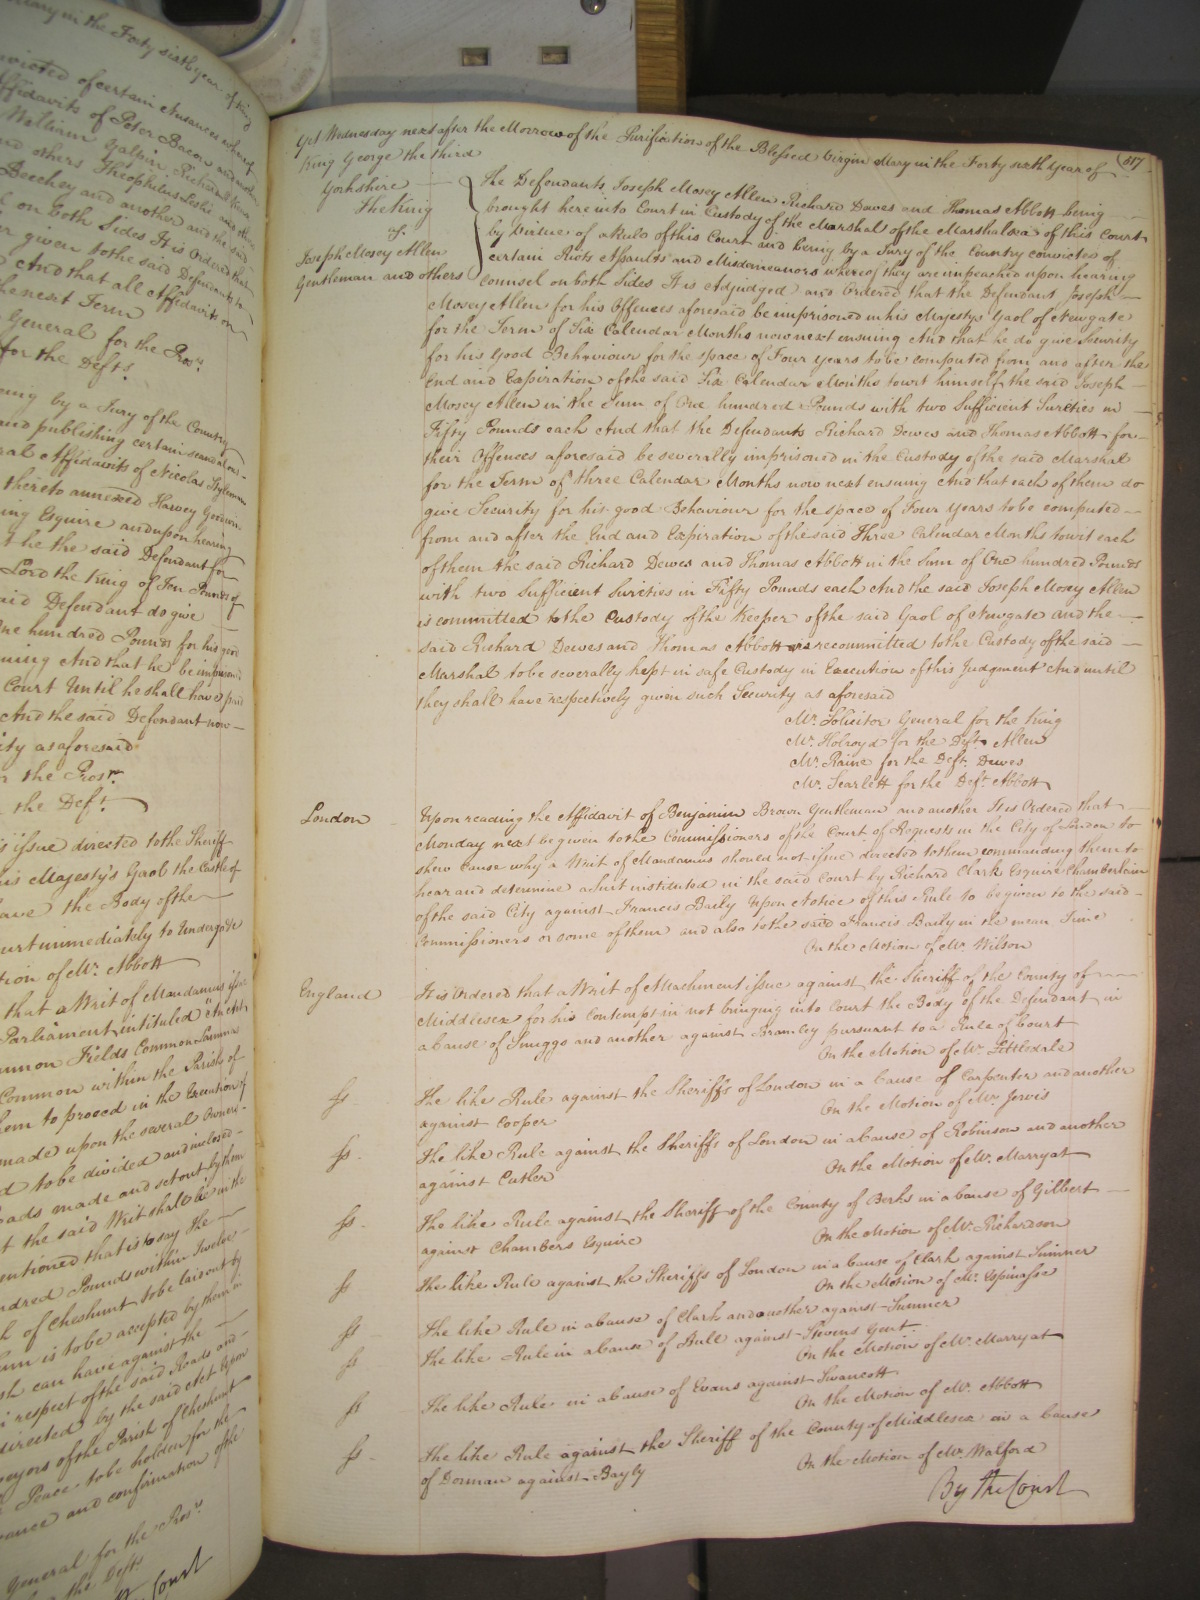 ruary in the Forty sixth year of King
nvicted of certain Nusances whereof
Affidavits of Peter Bacon and another
William Galpin Richard
and others Theophilus Leslie and others
Beechey and another and the said
on both Sides It is Ordered that
given to the said Defendants to
And that all Affidavits on
the next Term
General for the Prosrs
for the Defts.
being by a Jury of the Country
and publishing certain
ral Affidavits of Nicolas
thereto annexed Harvey
Esquire and upon hearing
t he the said Defendant for
Lord the King of Ten Pounds of
aid Defendant do give
One hundred Pounds for his good
And that he be imprisoned
Court Until he shall have paid
And the said Defendant now
ity as aforesaid
the Prosr.
the Deft.
issue directed to the Sheriff
his Majesty's Gaol the Castle of
have the Body of the
urt immediately to Undergo the
tion of Mr. Abbott
that a Writ of Mandamus issue
Parliament intituled "An Act
mmon Fields Common
Common within the Parish of
them to proceed in the Execution of
made upon the several Owners
d to be divided and inclosed
oads made and set out by them
t the said Writ shall be in the
entioned that is to say the
ndred Pounds within Twelve
h of Cheshunt to be laid out by
is to be accepted by them in
can have against the
respect of the said Roads and
directed by the said Act Upon
veyors of the Parish of Cheshunt
Peace to be holden for the
rance and confirmation of the
General for the Prosrs
the Defts
Court
Yet Wednesday next after the Morrow of the Purification of the Blessed Virgin Mary in the Forty sixth Year of 817
King George the third
Yorkshire
The King
v.
Joseph Mosey Allen
Gentleman and others
The Defendants Joseph Mosey Allen Richard Dawes and Thomas Abbott being
brought here into Court in Custody of the Marshal of the Marshalsea of this Court
by Virtue of a Rule of this Court and being by a Jury of the Country convicted of
certain Riots Assaults and Misdemeanors whereof they are impeached upon hearing
Counsel on both Sides It is Adjudged and Ordered that the Defendant Joseph
Mosey Allen for his Offences aforesaid be imprisoned in his Majestys Gaol of Newgate
for the Term of Six Calendar Months now next ensuing And that he do give Security
for his Good Behaviour for the space of Four years to be computed from and after the
End and Expiration of the said Six Calendar Months towit himself the said Joseph
Mosey Allen in the Sum of One hundred Pounds with two Sufficient Sureties in
Fifty Pounds each And that the Defendants Richard Dewes and Thomas Abbott for
their Offences aforesaid be severally imprisoned in the Custody of the said Marshal
for the Term of Three Calendar Months now next ensuing And that each of them do
give Security for his good Behaviour for the space of Four years to be computed
from and after the End and Expiration of the said Three Calendar Months towit each
of them the said Richard Dewes and Thomas Abbott in the Sum of One hundred Pounds
with two Sufficient Sureties in Fifty Pounds each And the said Joseph Mosey Allen
is committed to the Custody of the Keeper of the said Gaol of Newgate and the
said Richard Dewes and Thomas Abbott are recommitted to the Custody of the said
Marshal to be severally kept in safe Custody in Execution of this Judgment And until
they shall have respectively given such Security as aforesaid
Mr. Solicitor General for the King
Mr. Holroyd for the Deft. Allen
Mr. Raine for the Deft. Dewes
Mr. Scarlett for the Deft. Abbott
London
Upon reading the Affidavit of Benjamin Brown Gentleman and another It is Ordered that
Monday next be given to the Commissioners of the Court of Requests in the City of London to
shew cause why a Writ of Mandamus should not issue directed to them commanding them to
hear and determine a Suit instituted in the said Court by Richard Clark Esquire Chamberlain
of the said City against Francis Baily Upon Notice of this Rule to be given to the said
Commissioners or some of them and also to the said Francis Baily in the mean Time
On the Motion of Mr. Wilson
England
It is Ordered that a Writ of Attachment issue against the Sheriff of the County of
Middlesex for his Contempt in not bringing into Court the Body of the Defendant in
a Cause of Snuggs and another against Bramley pursuant to a Rule of Court
On the Motion of Mr. Littledale
ss
The like Rule against the Sheriffs of London in a Cause of Carpenter and another
against Cooper
On the Motion of Mr. Jervis
ss
The like Rule against the Sheriffs of London in a Cause of Robinson and another
against Cutler
On the Motion of Mr. Marryat
ss
The like Rule against the Sheriff of the County of Berks in a Cause of Gilbert
against Chambers Esquire
On the Motion of Mr. Richardson
ss
The like Rule against the Sheriffs of London in a Cause of Clark against Sumner
On the Motion of Mr. Espinasse
ss
The like Rule in a Cause of Clark and another against Sumner
ss
The like Rule in a Cause of Bull against Stevens Gent.
On the Motion of Mr. Marryat
ss
The like Rule in a Cause of Evans against Swancott
On the Motion of Mr. Abbott
ss
The like Rule against the Sheriff of the County of Middlesex in a Cause
of Dorman against Bayly
On the Motion of Mr. Walford
By the Court